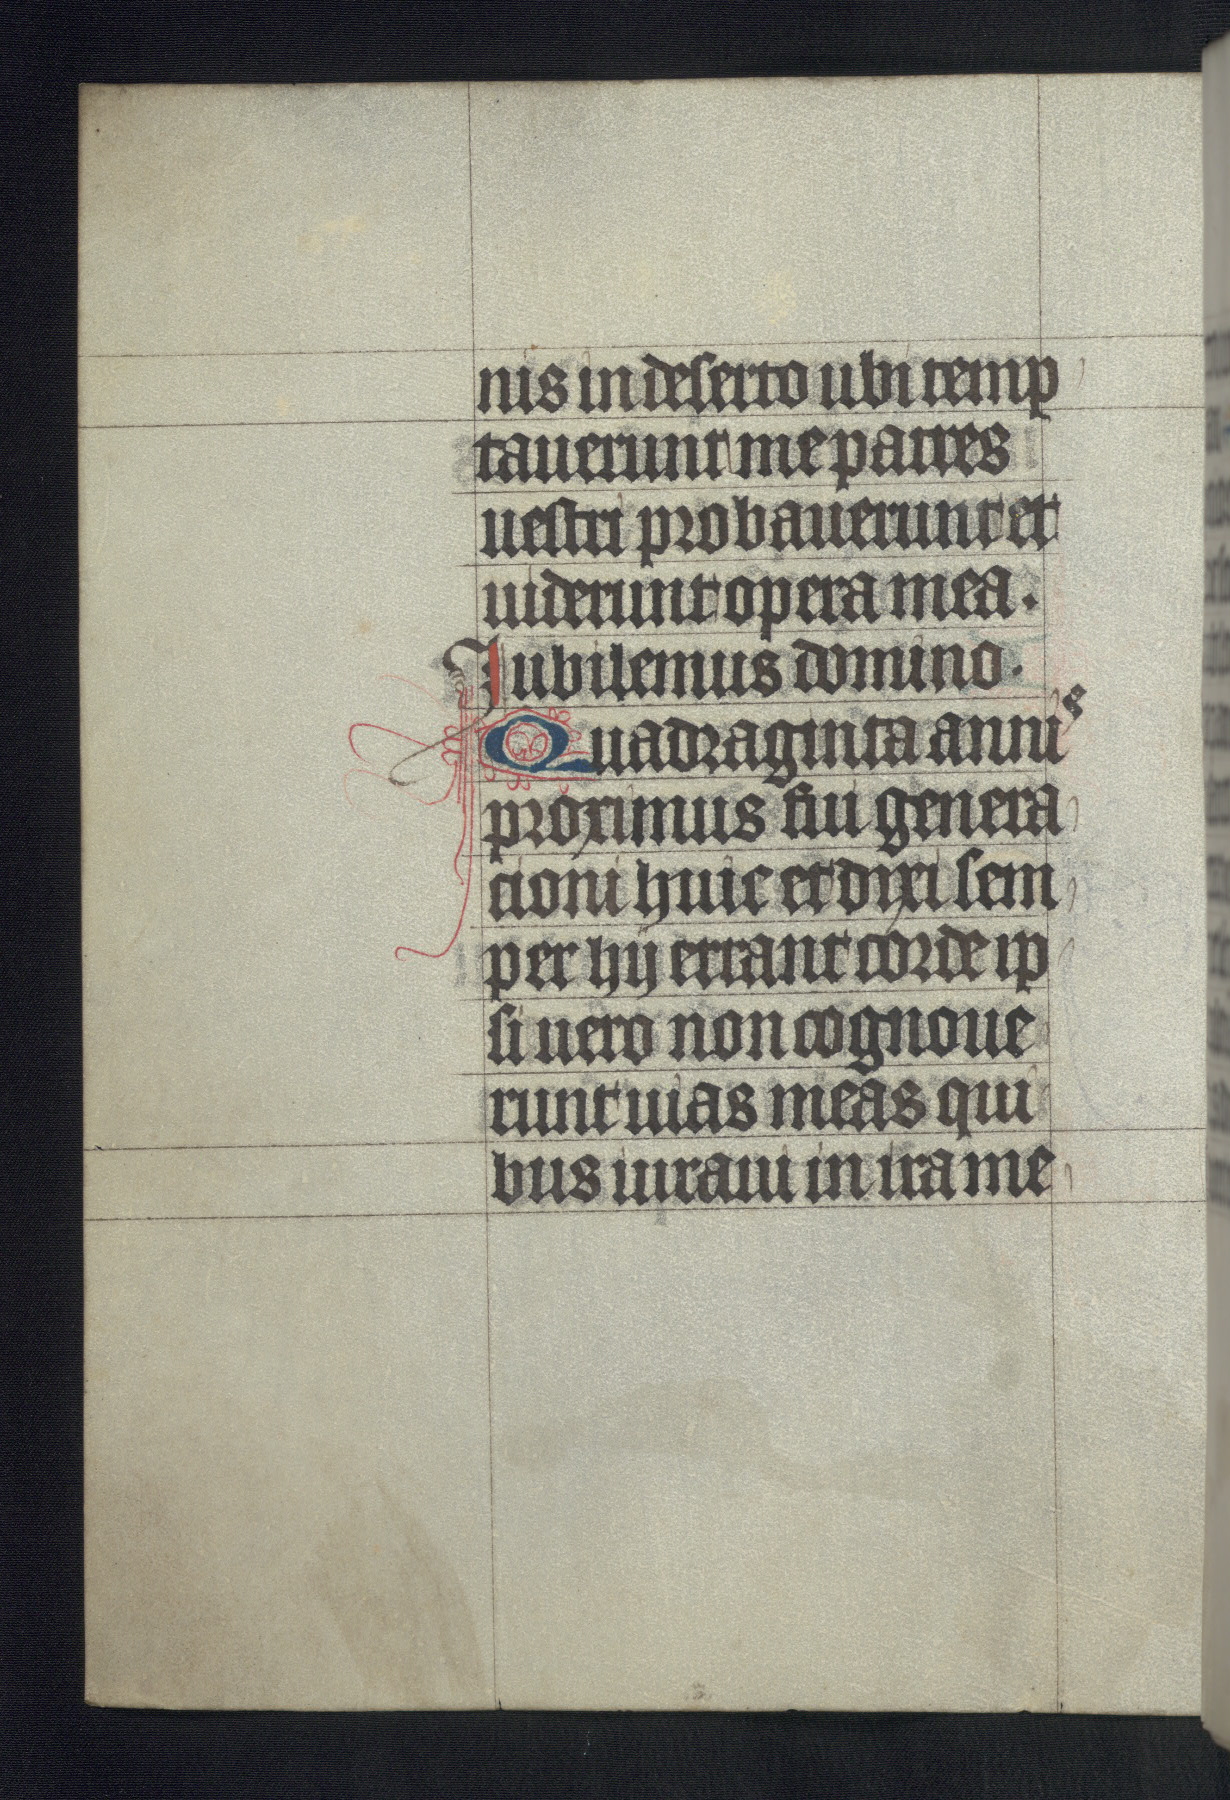 nis in deserto ubi temp
tauerunt me patres
uestri probauerunt et
uiderunt opera mea.
Iubilemus domino.
Quadraginta annis
proximus fui genera
cioni huic et dixi sem
per hij errant corde ip
si uero non cognoue
runt uias meas qui
bus iuraui in ira me